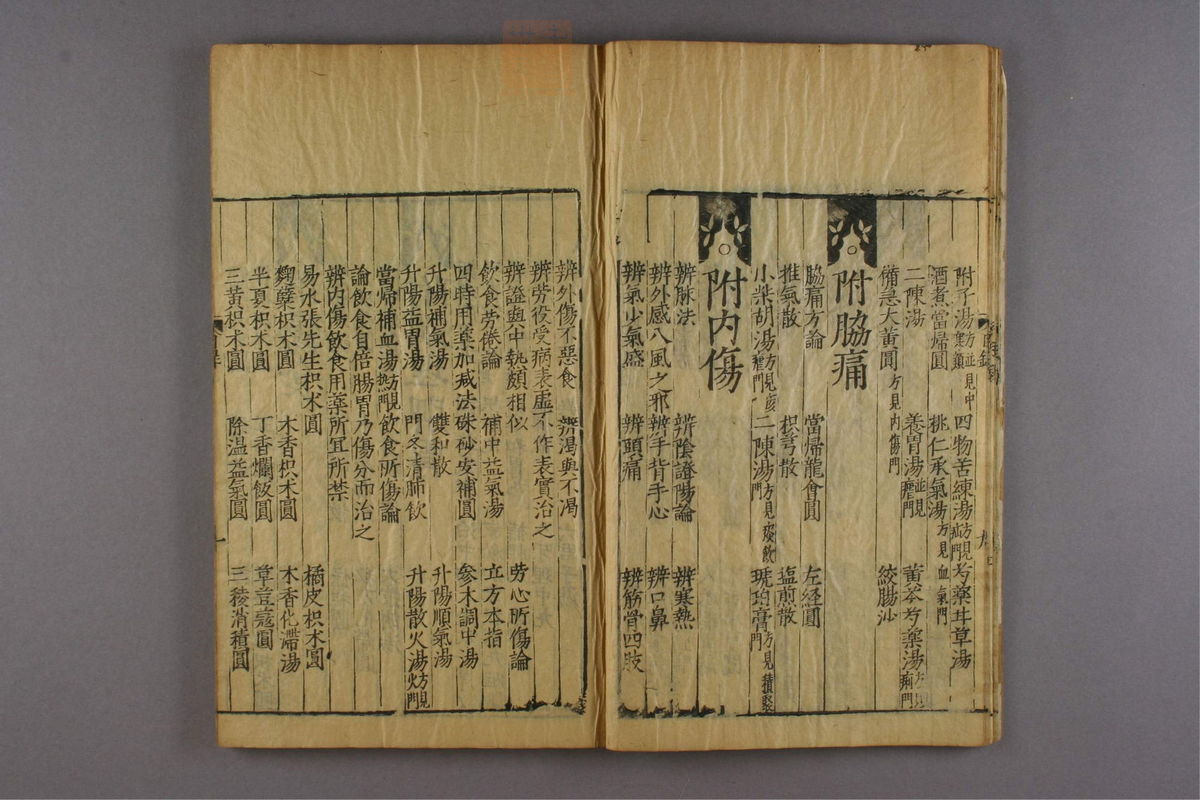 附子湯方並見中寒類 四物苦練湯方見疝門 芍藥甘草湯
酒煮當歸圓 桃仁承氣湯方見血氣門
二陳湯 養胃湯並見瘧門 黃芩芍藥湯方見痢門
備急大黃圓方見內傷門 絞腸沙
附脇痛
脇痛方論 當歸龍會圓 左經圓
推氣散 枳芎散 塩煎散
小柴胡湯方見瘧門 二陳湯方見痰飲門 琥珀膏方見積聚門
附內傷
辨脉法 辨陰證陽論 辨寒熱
辨外感八風之邪 辨手背手心 辨口鼻
辨氣少氣盛 辨頭痛 辨筋骨四肢
辨外傷不惡食 辨渴與不渴
辨勞役受病表虛不作表實治之
辨證與中熱頗相似 勞心所傷論
飲食勞倦論 補中益氣湯 立方本指
四時用藥加减法 硃砂安補圓 參木調中湯
升陽補氣湯 雙和散 升陽順氣湯
升陽益胃湯 門冬清肺飲 升陽散火湯方見火門
當歸補血湯方見熱門 飲食所傷論
論飲食自倍腸胃乃傷分而治之
辨內傷飲食用藥所宜所禁
易水張先生枳朮圓 橘皮枳朮圓
麴蘖枳朮圓 木香枳朮圓 木香化滯湯
半夏枳朮圓 丁香爛飯圓 草荳蔻圓
三黃枳朮圓 除温益氣圓 三稜消積圓